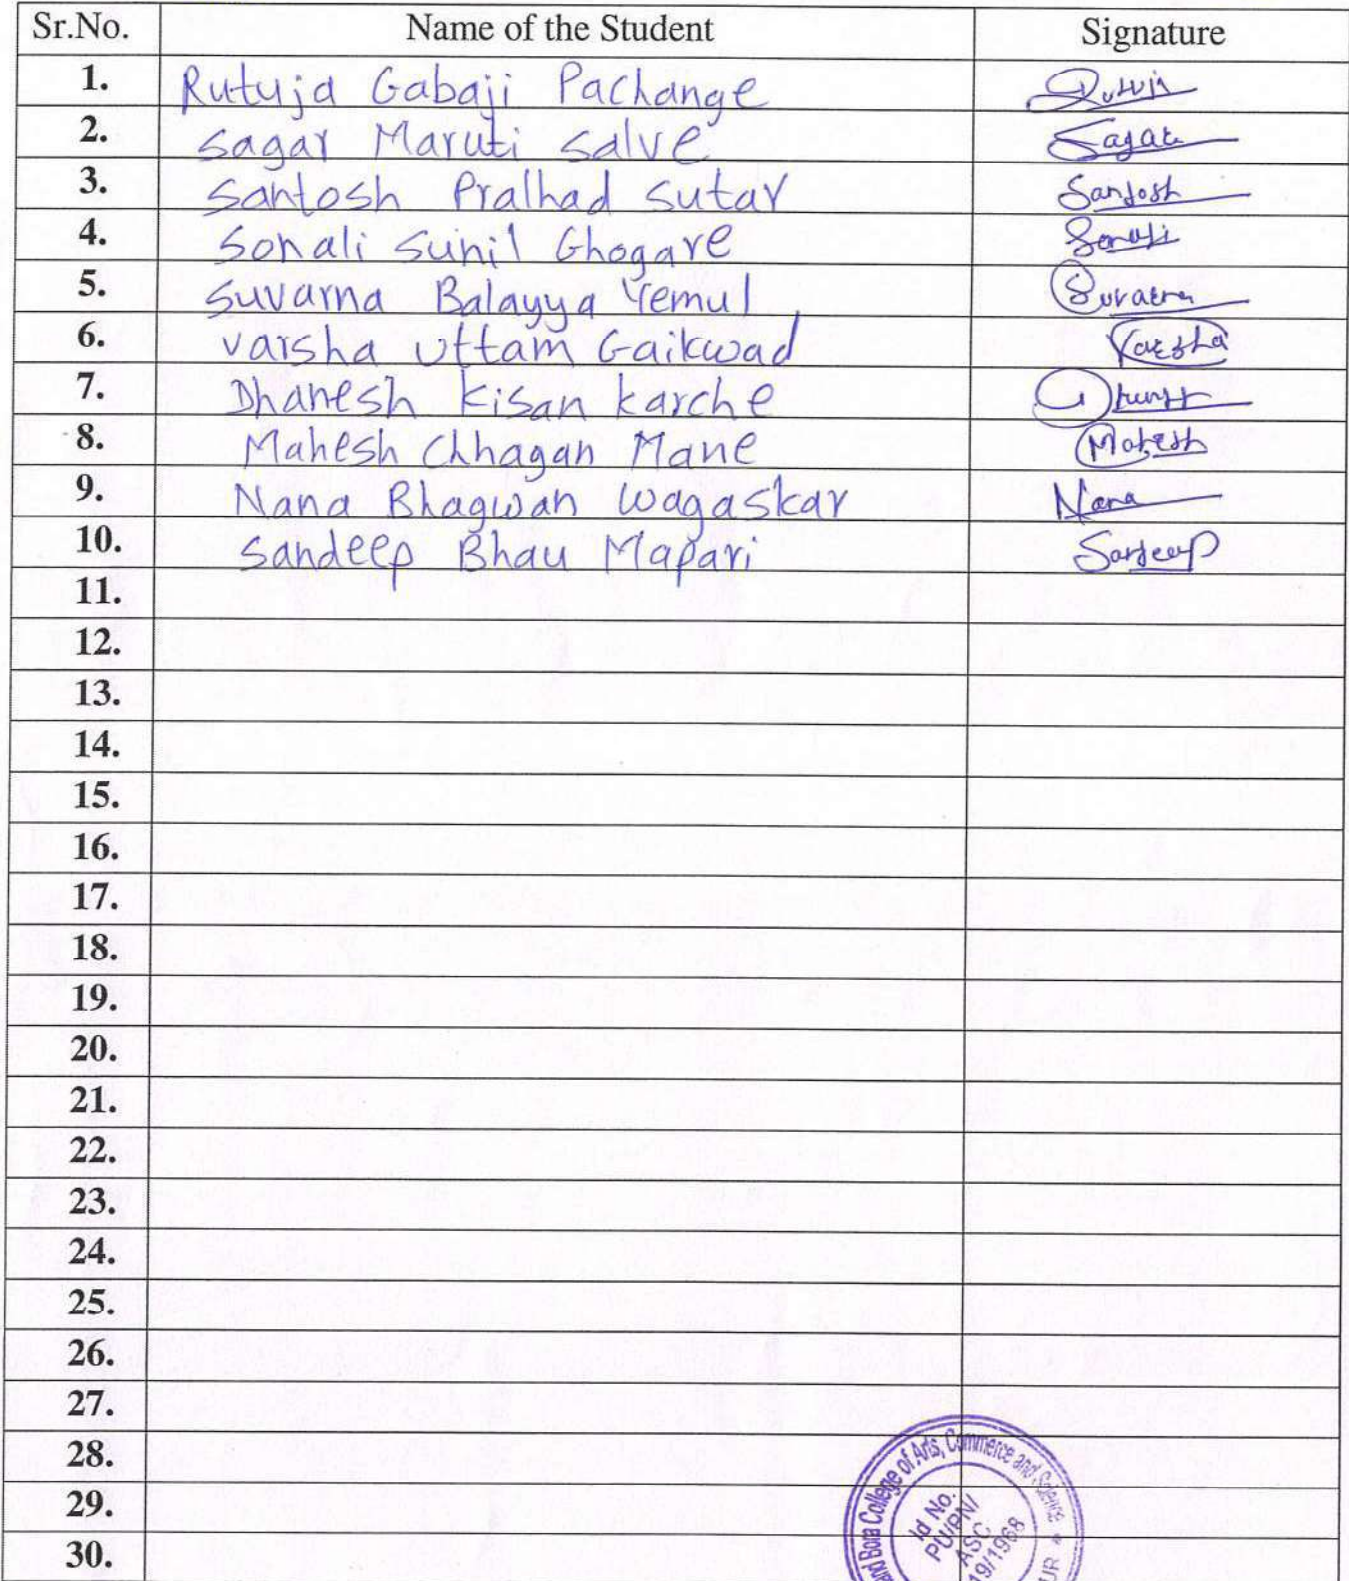 Sr.No. Name of the Student Signature
1. Rutuja Gabaji Pachange Rutuja
2. Sagar Maruti Salve Sagar
3. Santosh Pralhad Sutar Santosh
4. Sonali Sunil Ghogare Sonali
5. Suvarna Balayya Yemul Suvarna
6. Varsha Uttam Gaikwad Varsha
7. Dhanesh Kisan Karche
8. Mahesh Chhagan Mane Mahesh
9. Nana Bhagwan Wagaskar Nana
10. Sandeep Bhau Mapari Sandeep
11.
12.
13.
14.
15.
16.
17.
18.
19.
20.
21.
22.
23.
24.
25.
26.
27.
28.
29.
30.
Bora College of Arts, Commerce and Science
Id No.
PU/PN/
ASC
19/1968